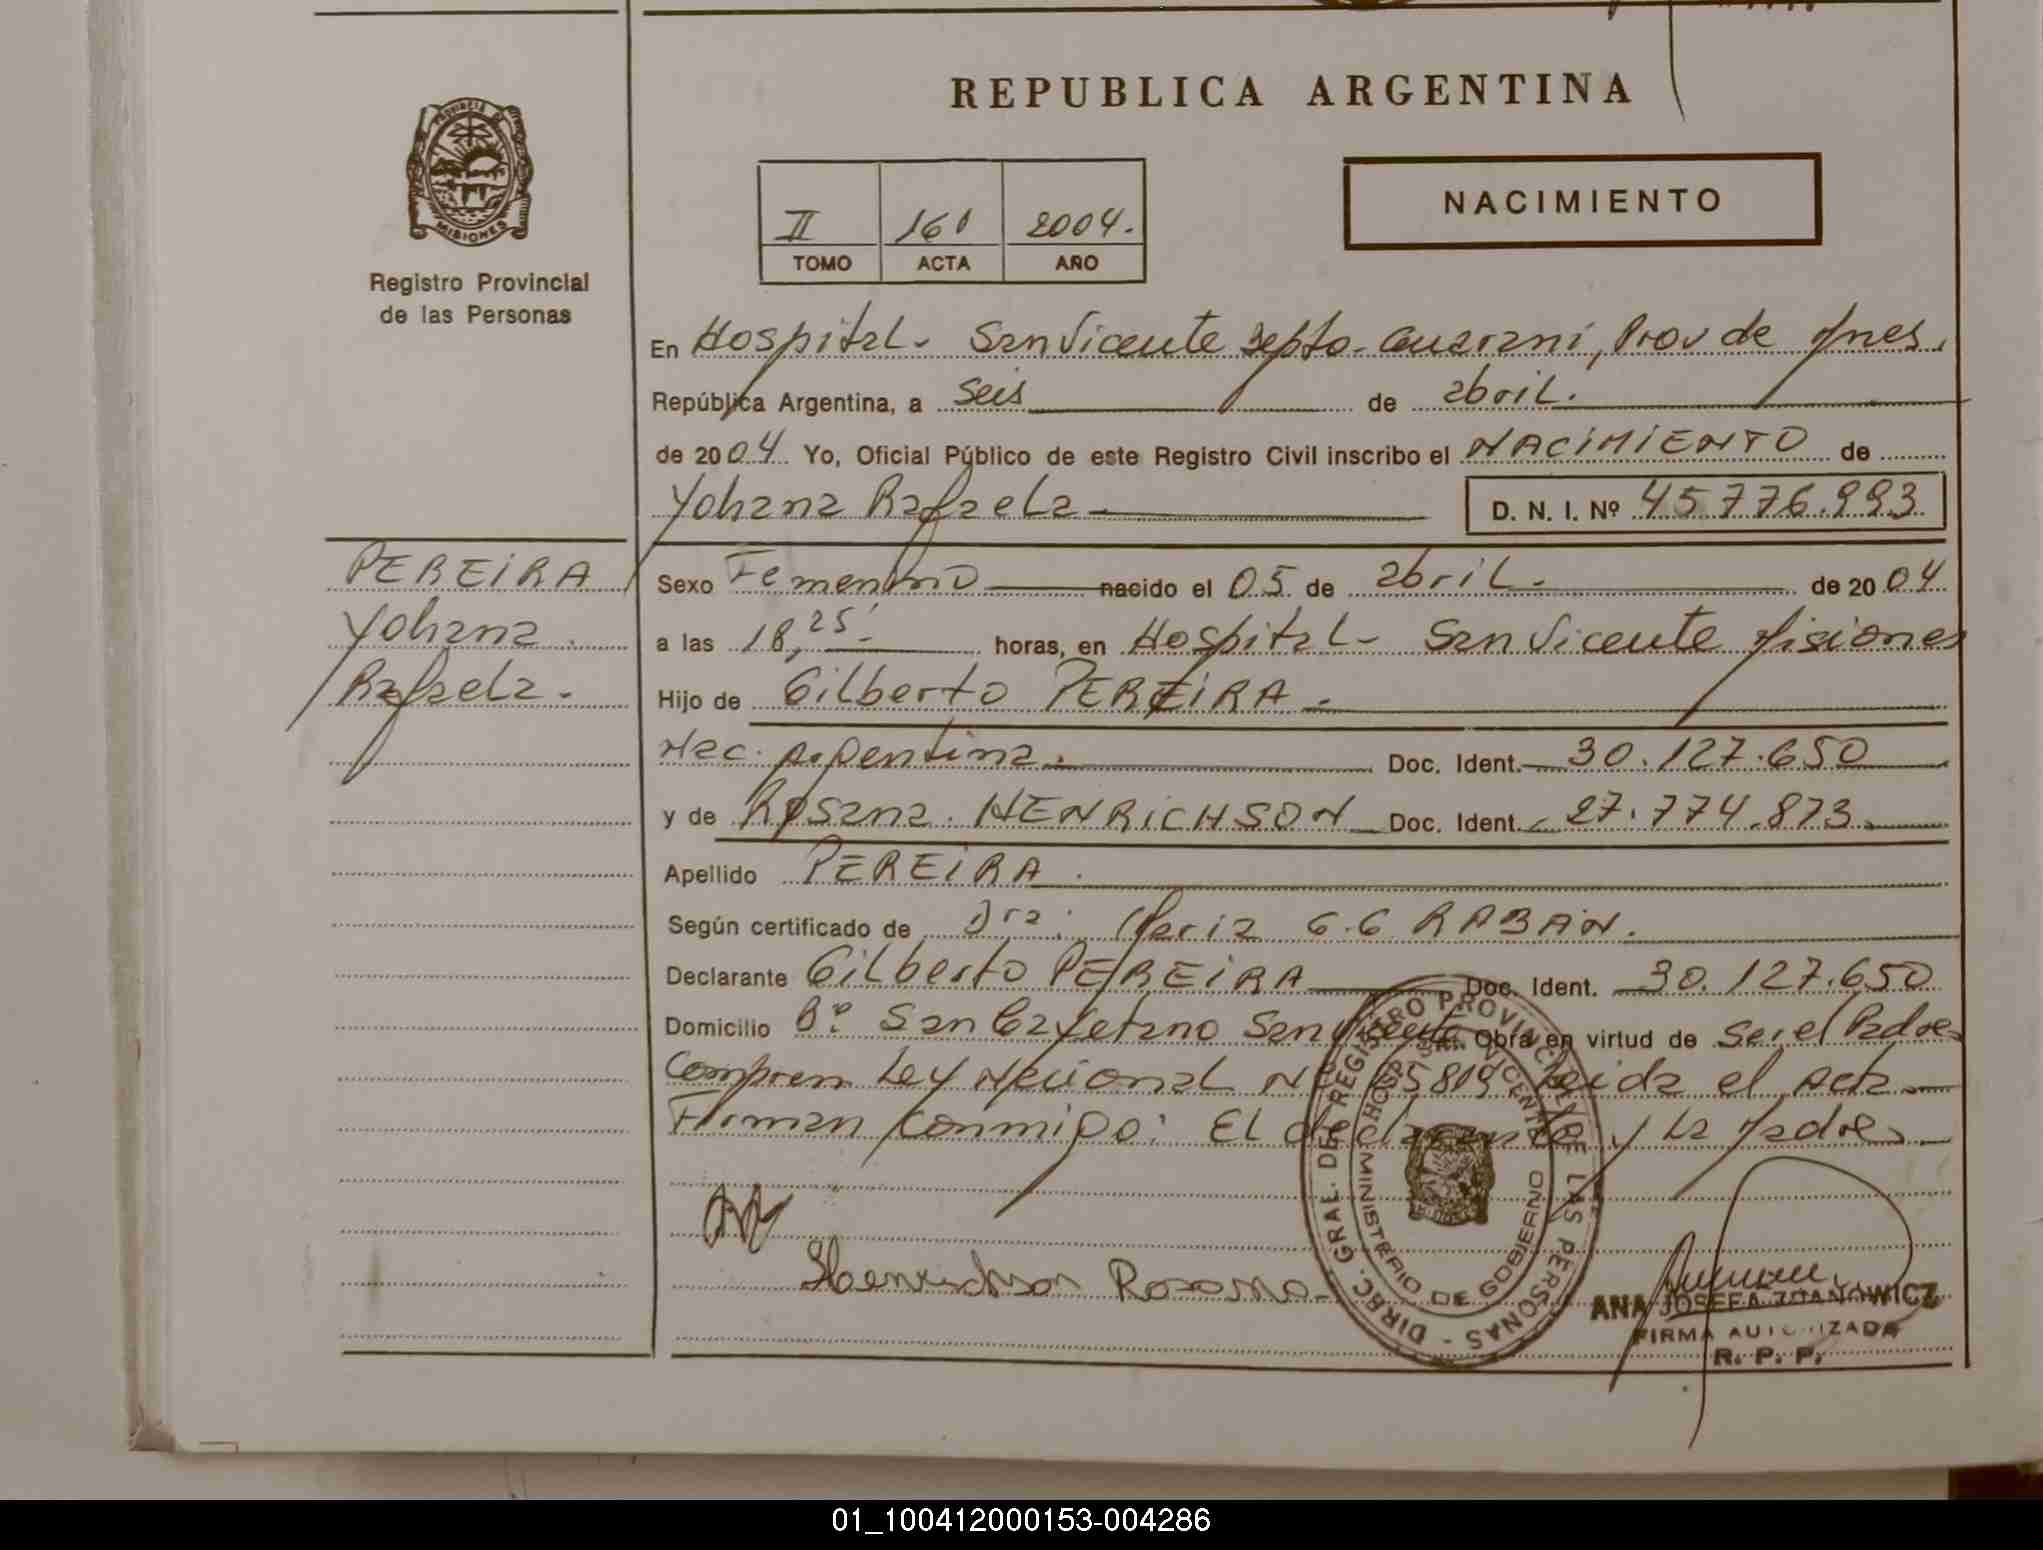 REPUBLICA ARGENTINA
PROVINCIA DE
MISIONES
Registro Provincial
de las Personas
II 161 2004.
TOMO ACTA AÑO
NACIMIENTO
En Hospital - San Vicente Depto. Guarani, Prov de Mnes.
República Argentina, a Seis de abril.
de 2004 Yo, Oficial Público de este Registro Civil inscribo el NACIMIENTO de
Yohana Rafaela D. N. I. Nº 45776.993
PEREIRA
Yohana
Rafaela.
Sexo Femenino nacido el 05 de abril. de 2004
a las 18,25' horas, en Hospital - San Vicente Misiones
Hijo de Gilberto PEREIRA.
Nac. Argentina. Doc. Ident. 30.127.650
y de Rosana HENRICHSON Doc. Ident. 27.774.873
Apellido PEREIRA.
Según certificado de Dra. Maria G.G RABAN.
Declarante Gilberto PEREIRA Doc. Ident. 30.127.650
Domicilio Bº San Cayetano San Vicente Obra en virtud de Ser el Padre
Ley Nacional Nº 25819 Leida el Acta
Firman conmigo: El declarante y la Madre
Henrichson Rosana
DIREC. GRAL. DEL REGISTRO PROVINCIAL DE LAS PERSONAS
MINISTERIO DE GOBIERNO
HOSP. SAN VICENTE
ANA JOSEFA ZDANOWICZ
FIRMA AUTORIZADA
R. P. P.
01_100412000153-004286